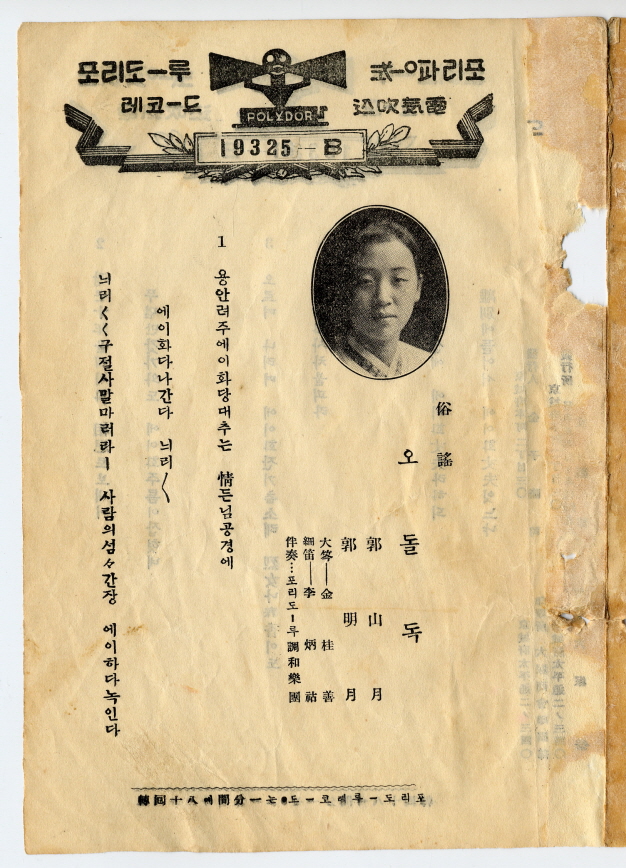 포리도ー루
레코ー드
電氣吹込
POLYDOR
19325—B
俗謠
오돌독
郭山月
郭明月
大笒—金桂善
細笛—李炳祜
伴奏…포리도ー루調和樂團
1 용안려주에이화당대추는 情든님공경에
에이화다나간다 늬리〱
늬리〱구절사말마러라ㅣ 사람의섬々간장 에이하다녹인다
포리도ー루레코ー드는一分間에八十回轉